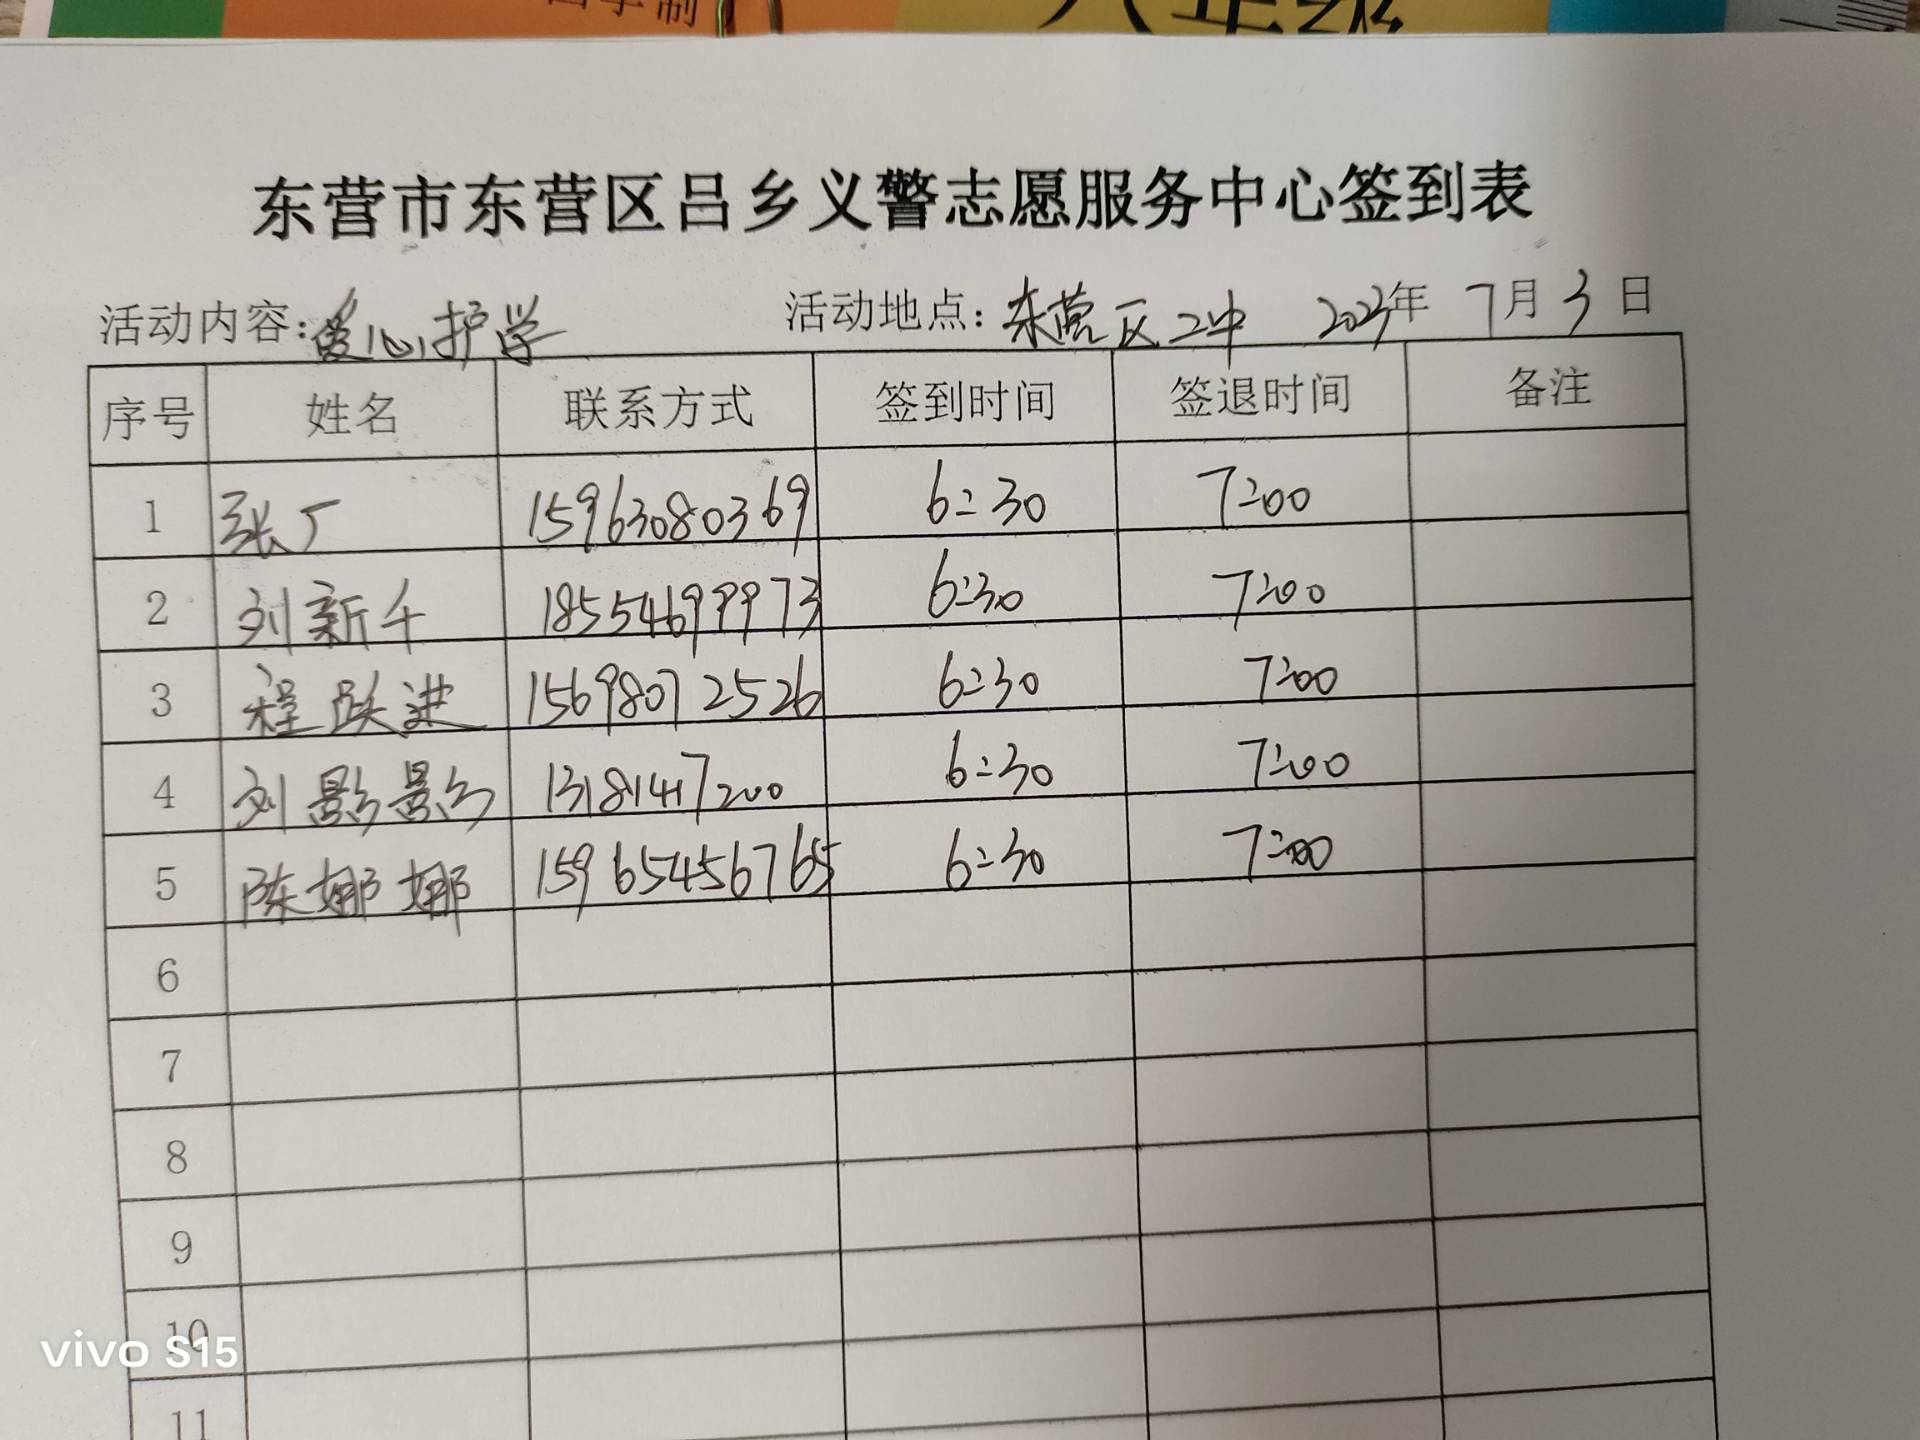 八年级
东营市东营区吕乡义警志愿服务中心签到表
活动内容:爱心护学 活动地点:东营区二中 2023年 7月3日
序号 姓名 联系方式 签到时间 签退时间 备注
1 张厂 15963080369 6:30 7:00
2 刘新千 18554699973 6:30 7:00
3 程跃进 15698072526 6:30 7:00
4 刘影影 1318147200 6:30 7:00
5 陈娜娜 15965456765 6:30 7:00
6
7
8
9
10
vivo S15
11